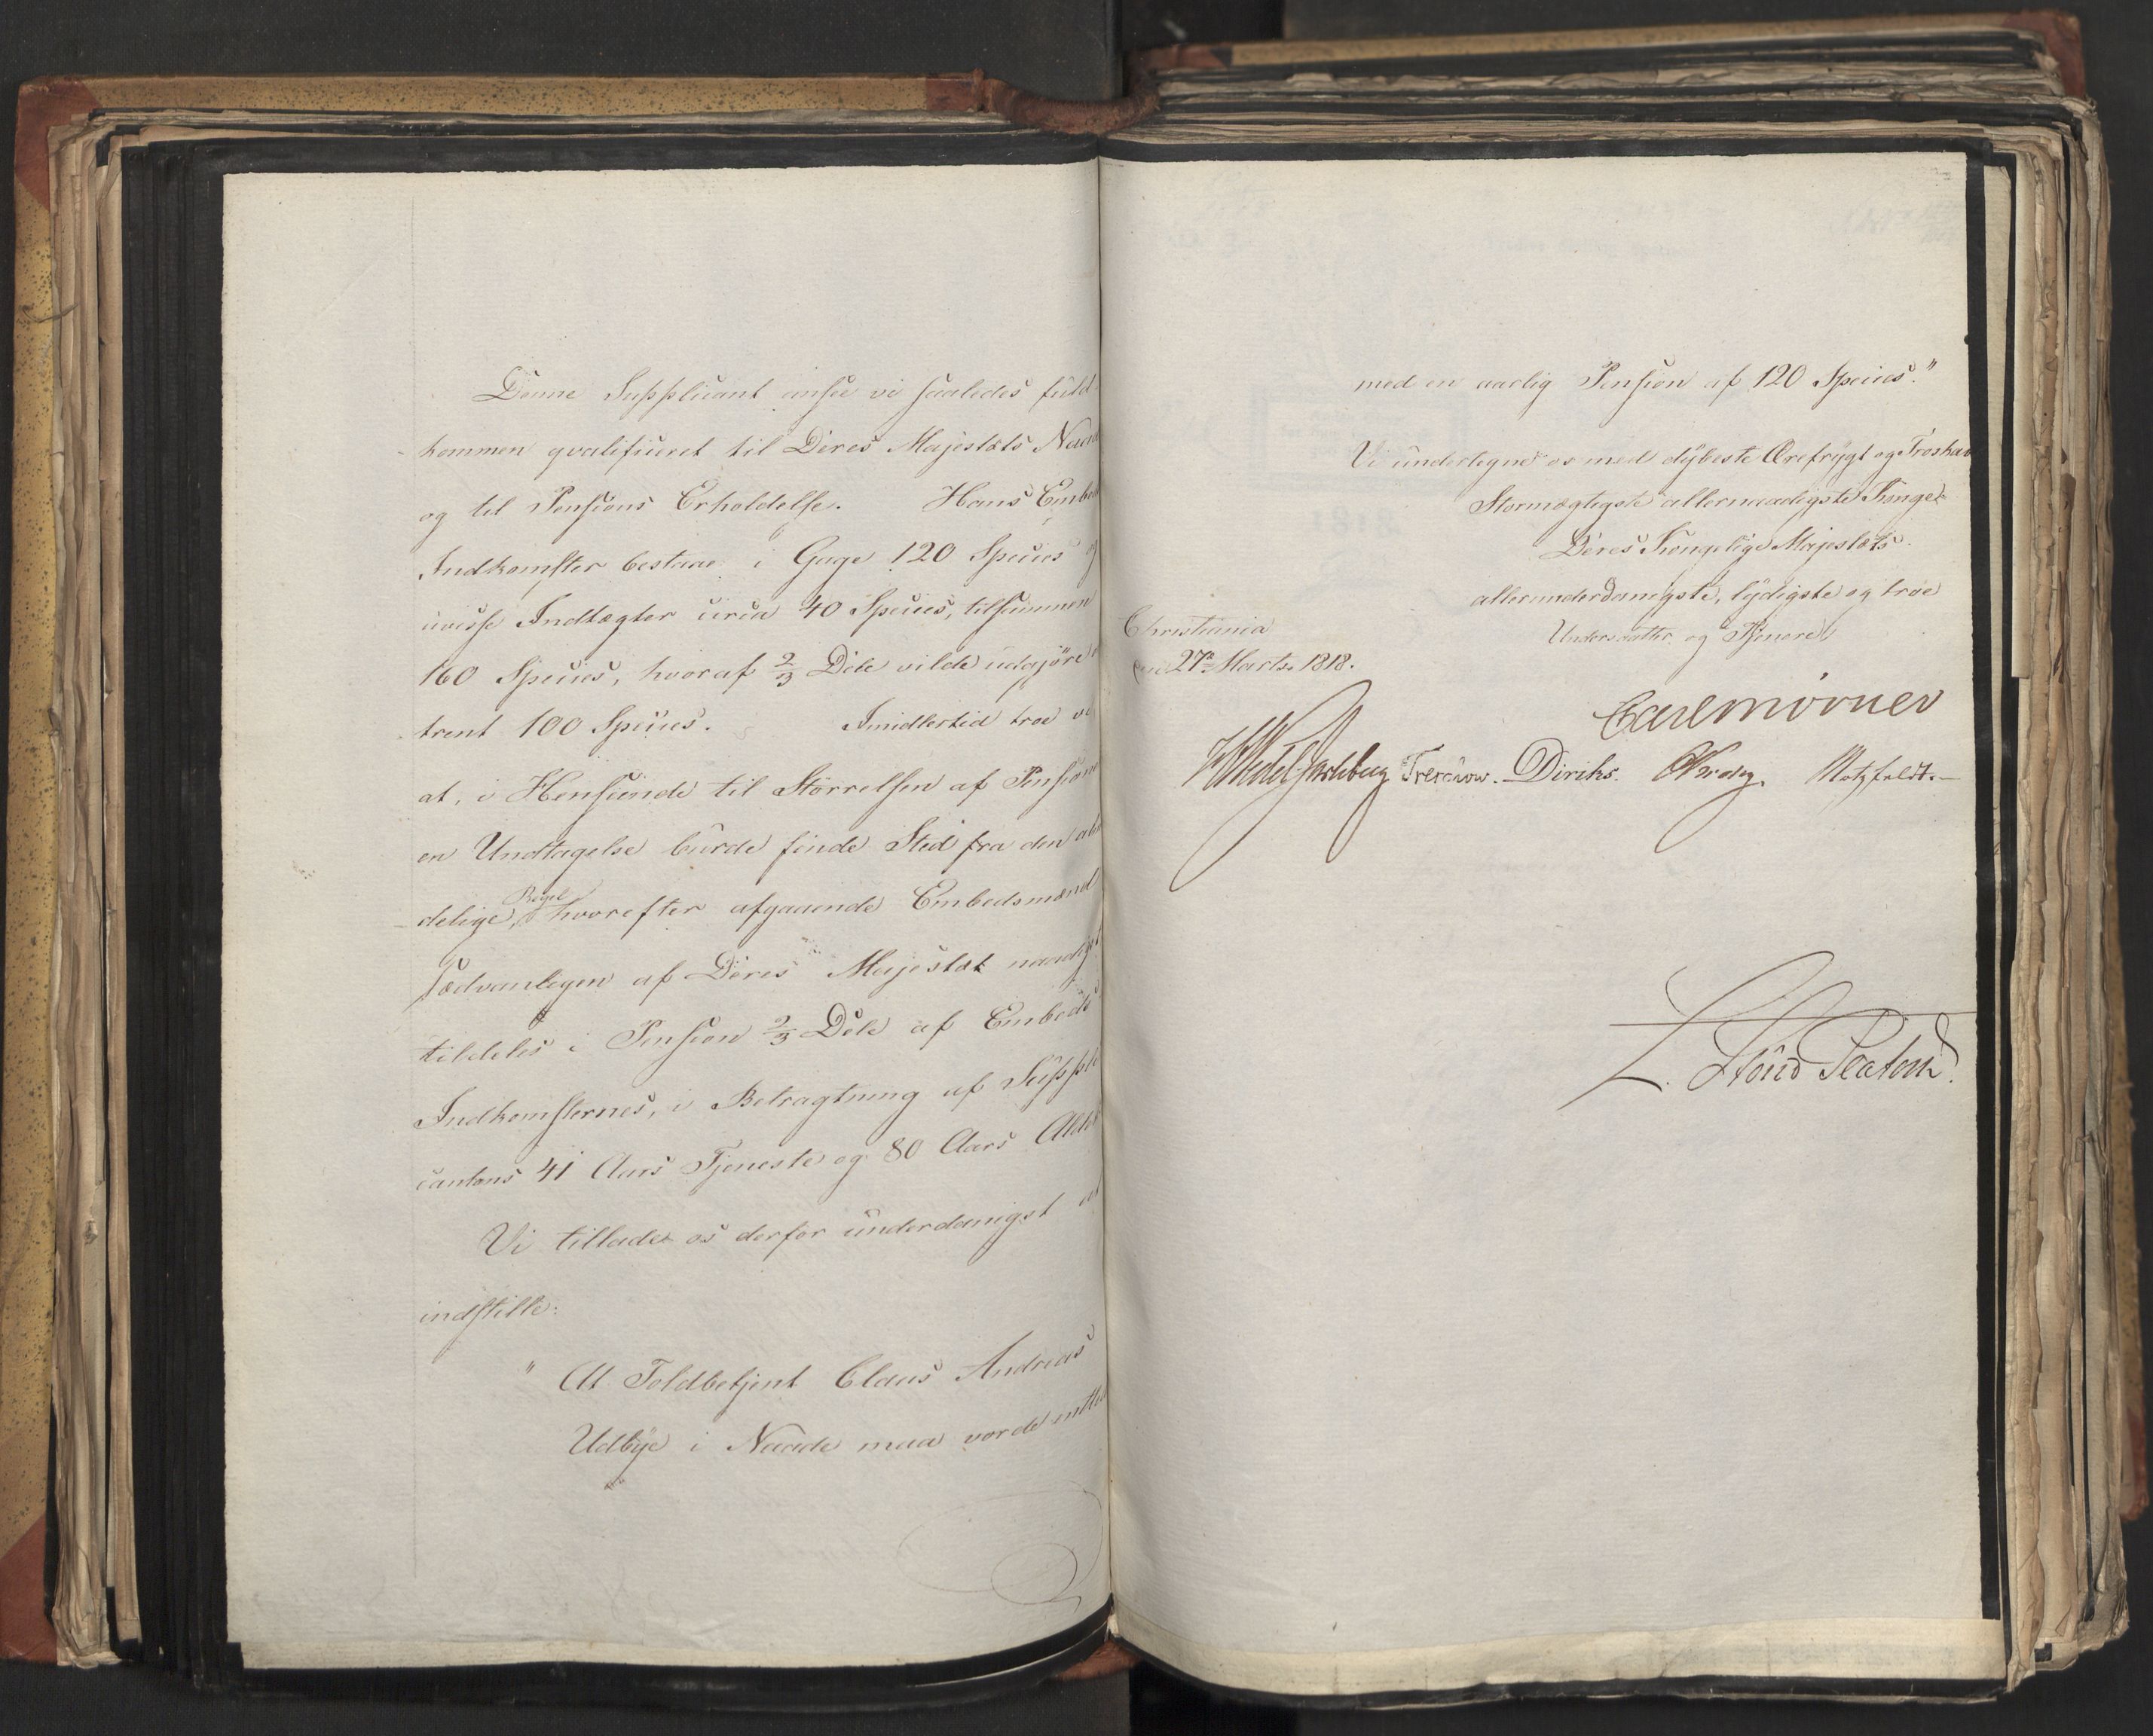 Denne Supplicant ansee vi saaledes fuld-
kommen qvalificeret til Deres Majestæts Naad
og til Pensions Erholdelse. Hans Embed
Indkomster bestaae i Gage 120 Species og
uvisse Indtægter circa 40 Species, tilsammen
160 Species, hvoraf 2/3 Dele vilde udgjøre
trent 100 Species. Imidlertid troe vi
at, i Hensünde til Størrelsen af Pensione
en Undtagelse burde finde Sted fra den alm
Regel
delige, hvorefter afgaaende Embedsmænd
sædvanligen af Deres Majestæt naadigst
tildeles i Pension 2/3 Dele af Embeds
Indkomsternes, i Betragtning af Suppli
cantens 41 Aars Tjeneste og 80 Aars Alder
Vi tillade os derfor underdanigst at
indstille:
" At Toldbetjent Claus Andreas
Udbye i Naade maa vorde entled
med en aarlig Pension af 120 Species."
Vi undertegne os med dybeste Ærefrygt og Troskab
Stormægtigste allernaadigste Konge
Deres Kongelige Majestæts
allerunderdanigste, lydigste og troe
Undersaatter og Tjenere
Christiania
den 27de Marts 1818.
Carl Mörner
HWedel Jarlsberg Treschow. Diriks. Krog. Motzfeldt.
L. Stoud Platou